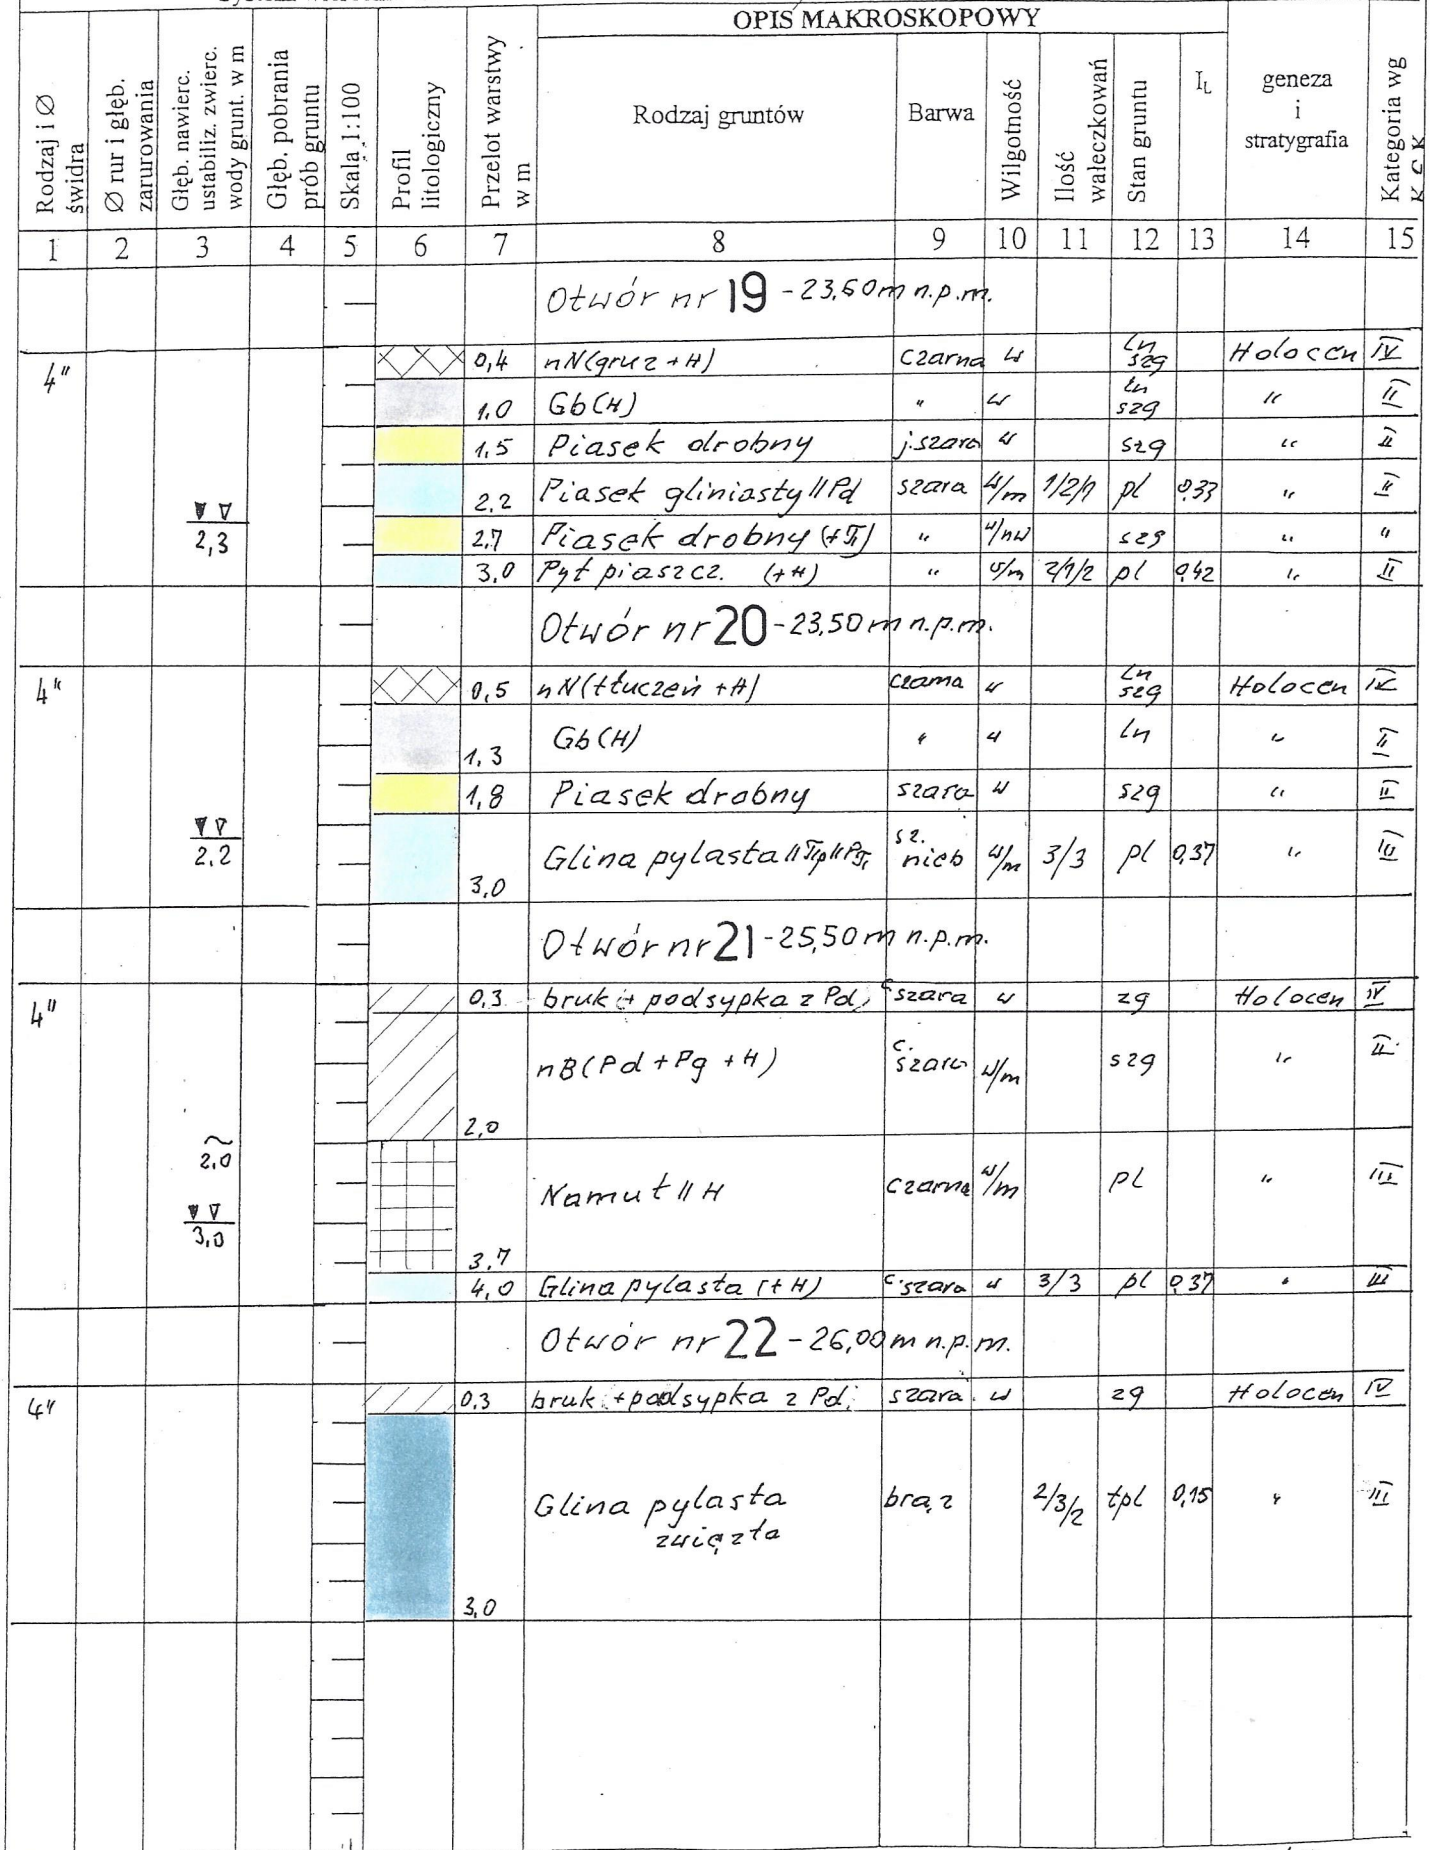 OPIS MAKROSKOPOWY
Rodzaj i Ø świdra
Ø rur i głęb. zarurowania
Głęb. nawierc. ustabiliz. zwierc. wody grunt. w m
Głęb. pobrania prób gruntu
Skala 1:100
Profil litologiczny
Przelot warstwy w m
Rodzaj gruntów
Barwa
Wilgotność
Ilość wałeczkowań
Stan gruntu
I_L
geneza i stratygrafia
Kategoria wg
1 2 3 4 5 6 7 8 9 10 11 12 13 14 15
Otwór nr 19 - 23,60 m n.p.m.
4" 0,4 nN(gruz + H) czarna w ln szg Holocen IV
1.0 Gb(H) " w ln szg " II
1,5 Piasek drobny j.szara w szg " II
2,2 Piasek gliniasty // Pd szara w/m 1/2/1 pl 0,33 " II
2,3 2,7 Piasek drobny (+π) " w/nw szg " "
3,0 Pył piaszcz. (+H) " w/m 2/1/2 pl 0,42 " II
Otwór nr 20 - 23,50 m n.p.m.
4" 0,5 nN(tłuczeń +H) czarna w ln szg Holocen IV
1,3 Gb(H) " w ln " II
1,8 Piasek drobny szara w szg " II
2,2 3,0 Glina pylasta // πp // Pπ sz. nieb w/m 3/3 pl 0,37 " III
Otwór nr 21 - 25,50 m n.p.m.
4" 0,3 bruk + podsypka z Pd; c szara w zg Holocen IV
2,0 nB(Pd + Pg + H) c. szara w/m szg " II
~ 2,0
3,0 3,7 Namuł // H czarna w/m pl " III
4,0 Glina pylasta (+H) c.szara w 3/3 pl 0,37 " III
Otwór nr 22 - 26,00 m n.p.m.
4" 0.3 bruk + podsypka z Pd; szara w zg Holocen IV
3,0 Glina pylasta zwięzła brąz 2/3/2 tpl 0,15 " III